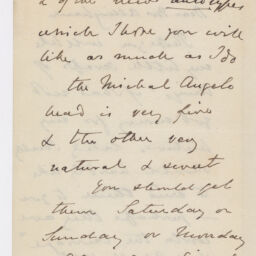 2 of the new autotypes
which I hope you will
like as much as I do
the Michal Angelo
head is very fine
& the other very
natural & sweet
You should get
them Saturday or
Sunday or Monday